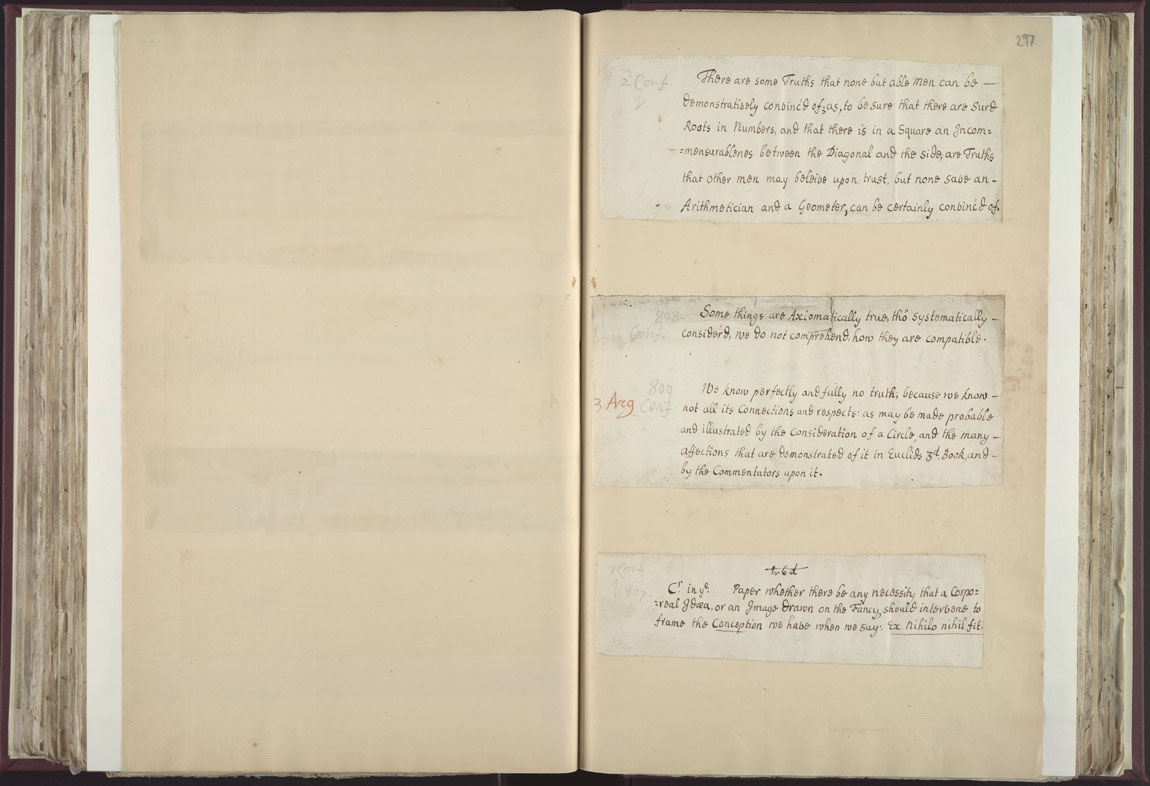 297
2 Conf.
There are some Truths that none but able men can be —
demonstratively convinc'd of; as, to be sure that there are Surd
Roots in Numbers, and that there is in a Square an Incom=
=mensurablenes between the Diagonal and the side, are Truths
that other men may beleive upon trust, but none save an -
Arithmetician and a Geometer, can be certainly convinc'd of.
808.
Conf.
Some things are Axiomatically true, thô systematically -
consider'd, we do not comprehend, how they are compatible.
809
3 Arg Conf
We know perfectly and fully no truth; because we know -
not all its Connections and respects: as may be made probable
and illustrated by the Consideration of a Circle, and the many -
affections that are demonstrated of it in Euclids 3d. Book, and -
by the Commentators upon it.
807.
Cr. in ye. Paper whether there be any necessity that a Corpo=
=real Idæa, or an Image drawn on the Fancy, should intervene to
frame the Conception we have when we say: Ex Nihilo nihil fit.